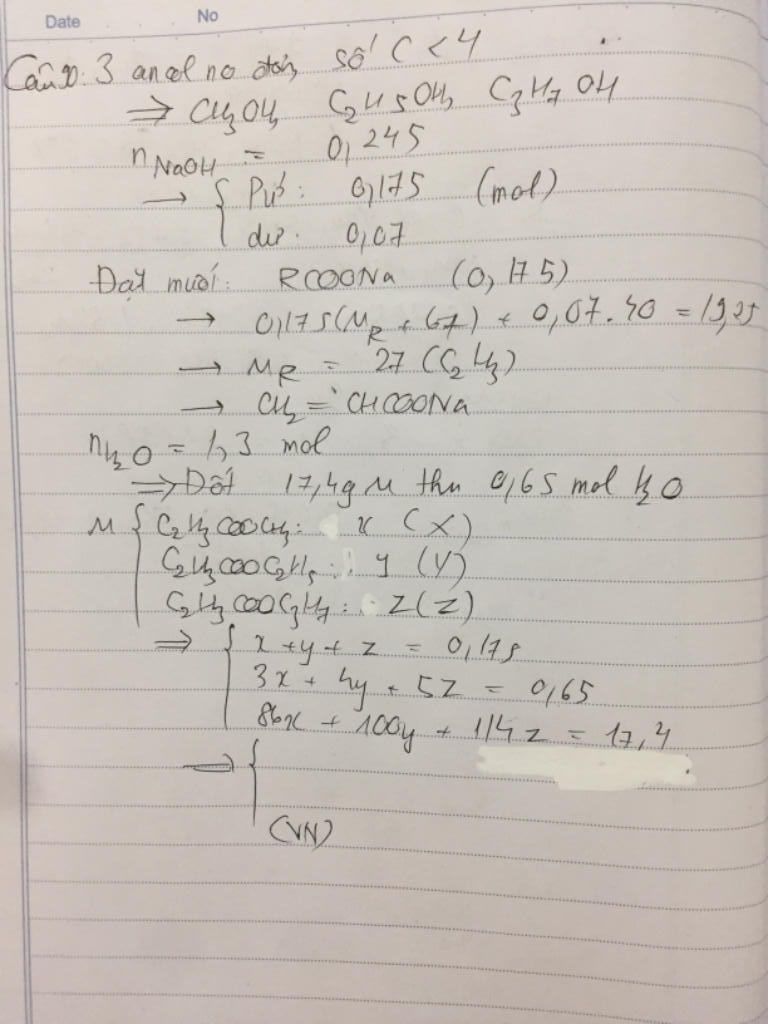 Date No
Câu 20: 3 ancol no đơn, số C < 4
⇒ CH3OH, C2H5OH, C3H7OH
nNaOH = 0,245
→ { Pư: 0,175 (mol)
dư: 0,07
Đặt muối: RCOONa (0,175)
→ 0,175(MR + 67) + 0,07.40 = 19,25
→ MR = 27 (C2H3)
→ CH2 = CHCOONa
nH2O = 1,3 mol
⇒ Đốt 17,4g M thu 0,65 mol H2O
M { C2H3COOCH3: x (X)
C2H3COOC2H5: y (Y)
C2H3COOC3H7: z (Z)
⇒ { x + y + z = 0,175
3x + 4y + 5z = 0,65
86x + 100y + 114z = 17,4
⇒ {
(VN)